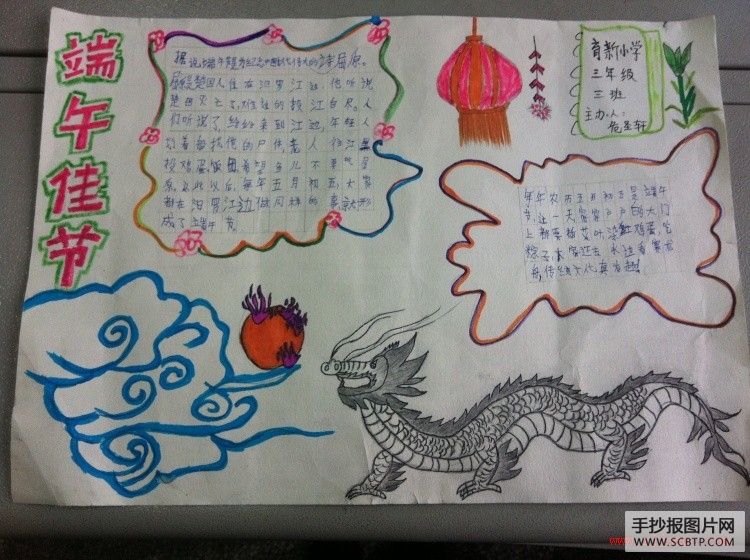 端午佳节
据说端午节是为纪念中国古代伟大的诗人屈原。
屈原是楚国人住在汨罗江边,他听说
楚国灭亡了,难过的投江自尽。人
们听说了,纷纷来到江边,年轻人
划着船找他的尸体,老人往江里
投鸡蛋饭团希望鱼儿不要气屈
原。从此以后,每年五月初五,大家
都在汨罗江边做同样的事,就形
成了端午节
育新小学
三年级
三班
主办人:
危圣轩
年年农历五月初五是端午
节,这一天家家户户的大门
上都要插艾叶,染红鸡蛋,吃
粽子,大家还去水边看赛龙
舟,传统文化真有趣。
手抄报图片网
www.SCBTP.COM